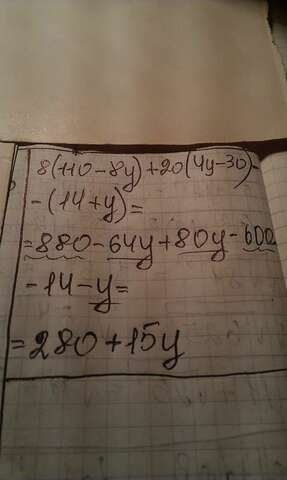 8(110-8y)+20(4y-30)-
-(14+y)=
=880-64y+80y-600
-14-y=
=280+15y